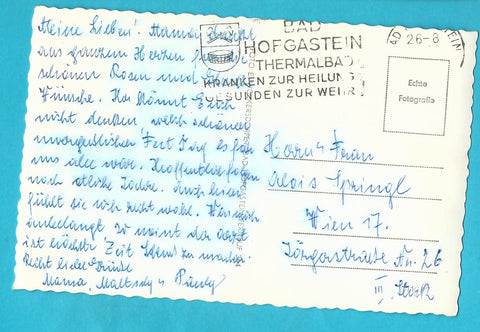 Meine Lieben! Mama dankt
aus ganzem Herzen für die
schönen Rosen und
Wünsche. Ihr könnt Euch
nicht denken, welch schöner
unvergeßlicher Fest Tag es für
uns alle war. Hoffentlich folgen
noch etliche Jahre. Auch hier
fühlt sie sich recht wohl. Was mich
anbelangt so meint der Arzt
ist höchste Zeit Schluß zu machen.
Recht liebe Grüße
Mama, u.
BAD
HOFGASTEIN
THERMALBAD
KRANKEN ZUR HEILUNG
GESUNDEN ZUR WEHR
26-8
Echte
Fotografie
Herrn u. Frau
Alois Springl
Wien 17.
Jörgerstraße Nr. 26
III Stock